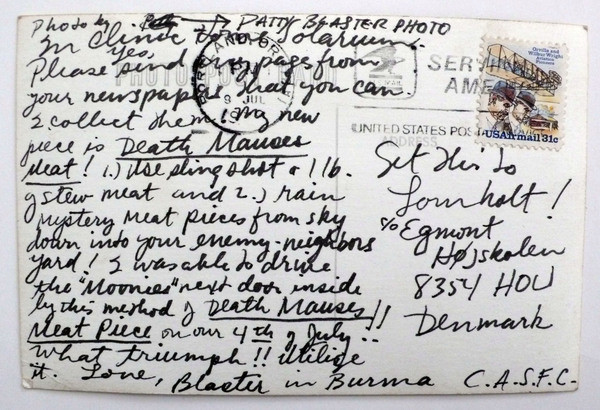 Photo by . Patty → PATTY BLASTER PHOTO
In Clinic Solarium.
Yes,
Please send any pages from
your newspapers that you can
I collect them! My new
piece is Death Mauses
Meat! 1.) Use slingshot + 1 lb.
of stew meat and 2.) rain
mystery meat pieces from sky
down into your enemy-neighbors
yard! I was able to drive
the "Moonies" next door inside
by this method of Death Mauses
Meat Piece on our 4th of July!!
What triumph!! Utilize
it. Love, Blaster in Burma C.A.S.F.C.
9 JUL
PHOTO POST CARD
SER
AME
UNITED STATES POST
ADDRESS
Orville and
Wilbur Wright
Aviation
Pioneers
USAirmail 31c
Get this to
Lomholt!
c/o Egmont
Højskolen
8354 HOU
Denmark